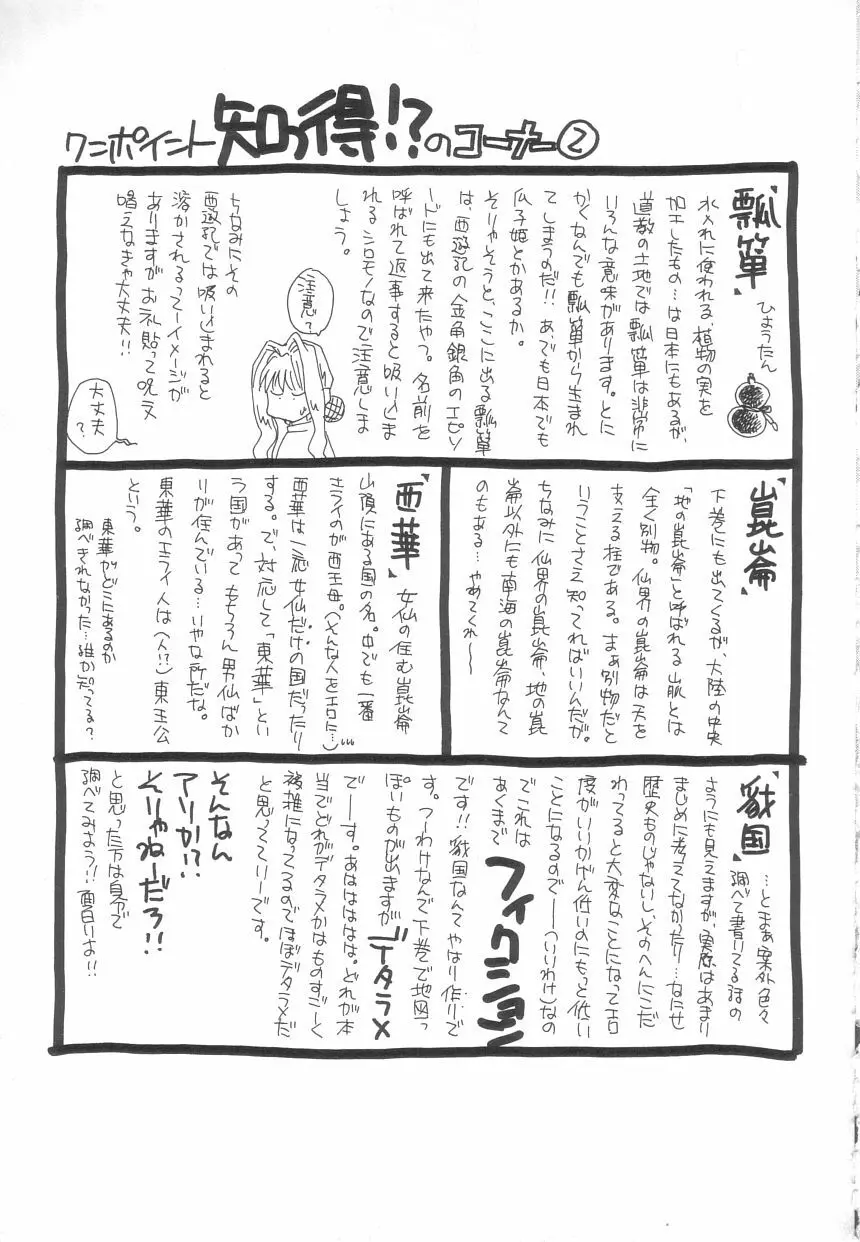 ワンポイント知っ得!?のコーナー②
『瓢箪』
ひょうたん
水入れに使われる、植物の実を
加工したもの…は日本にもあるが、
道教の土地では瓢箪は非常に
いろんな意味があります。とに
かくなんでも瓢箪から生まれ
てしまうのだ!!あ、でも日本でも
瓜子姫とかあるか。
そりゃそうと、ここに出る瓢箪
は、西遊記の金角銀角のエピソ
ードにも出て来たやつ。名前を
呼ばれて返事すると吸い込ま
れるシロモノなので注意しま
しょう。
注意?
ちなみにその
西遊記では吸い込まれると
溶かされるってーイメージが
ありますがお札貼って呪文
唱えなきゃ大丈夫!!
大丈夫?
『崑崙』
下巻にも出てくるが、大陸の中央
「地の崑崙」と呼ばれる山脈とは
全く別物。仙界の崑崙は天を
支える柱である。まぁ別物だと
いうことさえ知ってればいいんだが。
ちなみに仙界の崑崙、地の崑
崙以外にも南海の崑崙なんて
のもある…やめてくれ〜〜
『西華』
女仙の住む崑崙
山頂にある国の名。中でも一番
エライのが西王母。(そんな人をエロに…)
西華は一応女仙だけの国だったり
する。で、対応して「東華」とい
う国があってももろろん男仙ばか
りが住んでいる…いやな所だな。
東華のエライ人は(人!?)東王公
という。
東華がどこにあるのか
調べきれなかった…誰か知ってる?
『戳国』
…とまぁ案外色々
調べて書いてる話の
ようにも見えますが、実際はあまり
まじめに考えてなかったり…なたせ
歴史ものじゃないし、そのへんにこだ
わってると大変なことになってエロ
度がいいかげん低いのにもっと低い
ことになるので——(いいわけ)なの
でこれは
あくまで
フィクション
です!!戳国なんてやはり作りで
す。つーわけなんで下巻で地図っ
ぽいものが出ますが『デタラメ』
でーーす。あはははは。どれが本
当でどれがデタラメかはものすごーく
複雑になってるのでほぼデタラメだ
と思ってていーです。
そんなん
アリか!?
そりゃねーだろ!!
と思った方は自分で
調べてみよう!!面白いよ!!